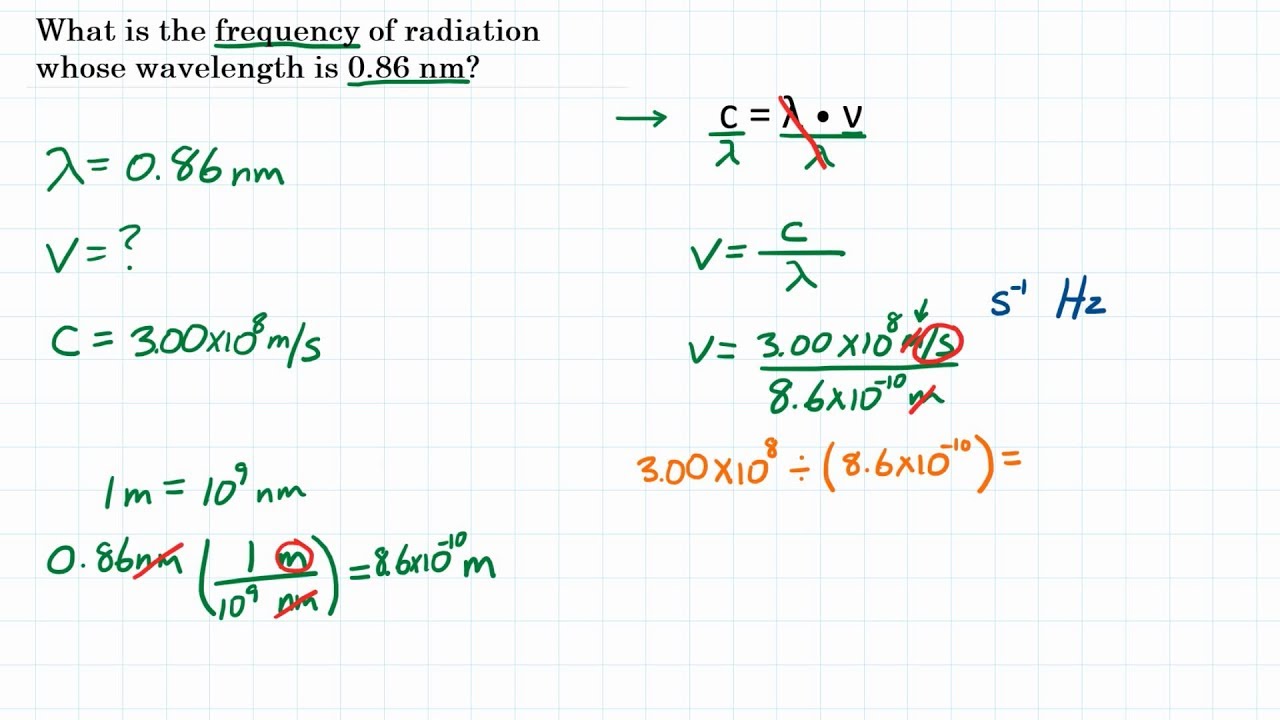 What is the frequency of radiation
whose wavelength is 0.86 nm?
λ = 0.86 nm
ν = ?
C = 3.00×10⁸ m/s
1 m = 10⁹ nm
0.86 nm (1 m / 10⁹ nm) = 8.6×10⁻¹⁰ m
→ c = λ • ν
λ λ
ν = c / λ
s⁻¹ Hz
ν = 3.00×10⁸ m/s
8.6×10⁻¹⁰ m
3.00×10⁸ ÷ (8.6×10⁻¹⁰) =